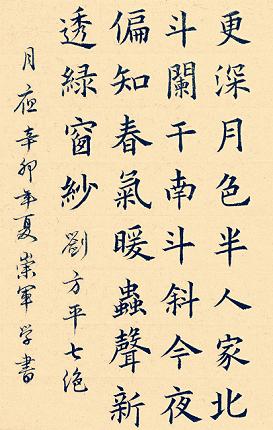 更深月色半人家北
斗闌干南斗斜今夜
偏知春氣暖蟲聲新
透綠窗紗 劉方平七絕
月夜辛卯年夏崇軍学書